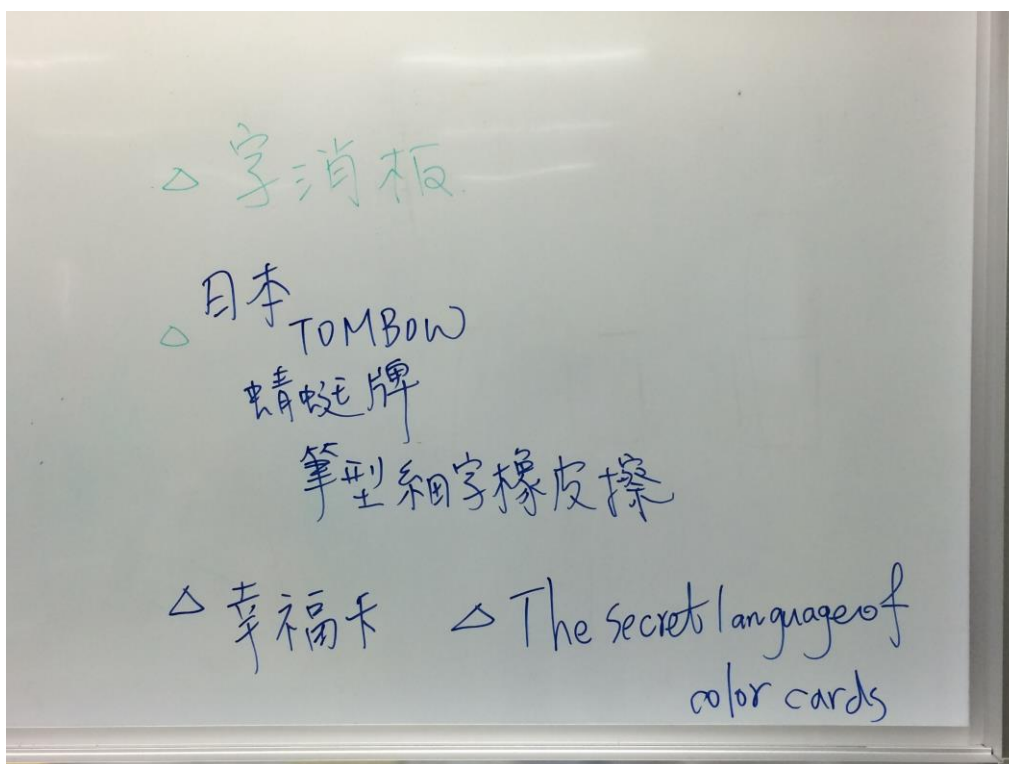 △ 字消板
日本
△ TOMBOW
蜻蜓牌
筆型細字橡皮擦
△ 幸福卡 △ The secret language of
color cards